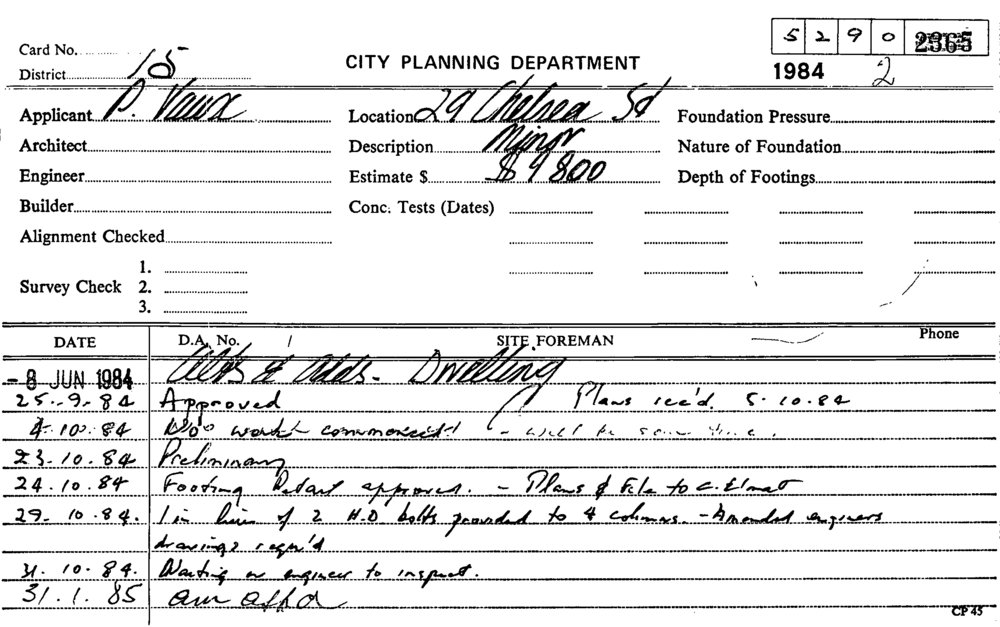 5 2 9 0 2365
Card No.
District 15
CITY PLANNING DEPARTMENT
1984 2
Applicant P. Vaux
Location 29 Chelsea Sd
Foundation Pressure
Architect
Description Minor
Nature of Foundation
Engineer
Estimate $ $9800
Depth of Footings
Builder
Conc. Tests (Dates)
Alignment Checked
1.
Survey Check 2.
3.
DATE D.A. No. SITE FOREMAN Phone
-8 JUN 1984 Alts & Adds. Dwelling
25.-9.-84 Approved Plans rec'd. 5.10.84
4.10.84 No work commenced - will be some time.
23.10.84 Preliminary
24.10.84 Footing approved. - Plans & File to C.
29.10.84. 1 in lieu of 2 H.D bolts provided to 4 columns. - Amended engineers
drawings requr'd
31.10.84. Waiting on engineer to inspect.
31.1.85
CP 45